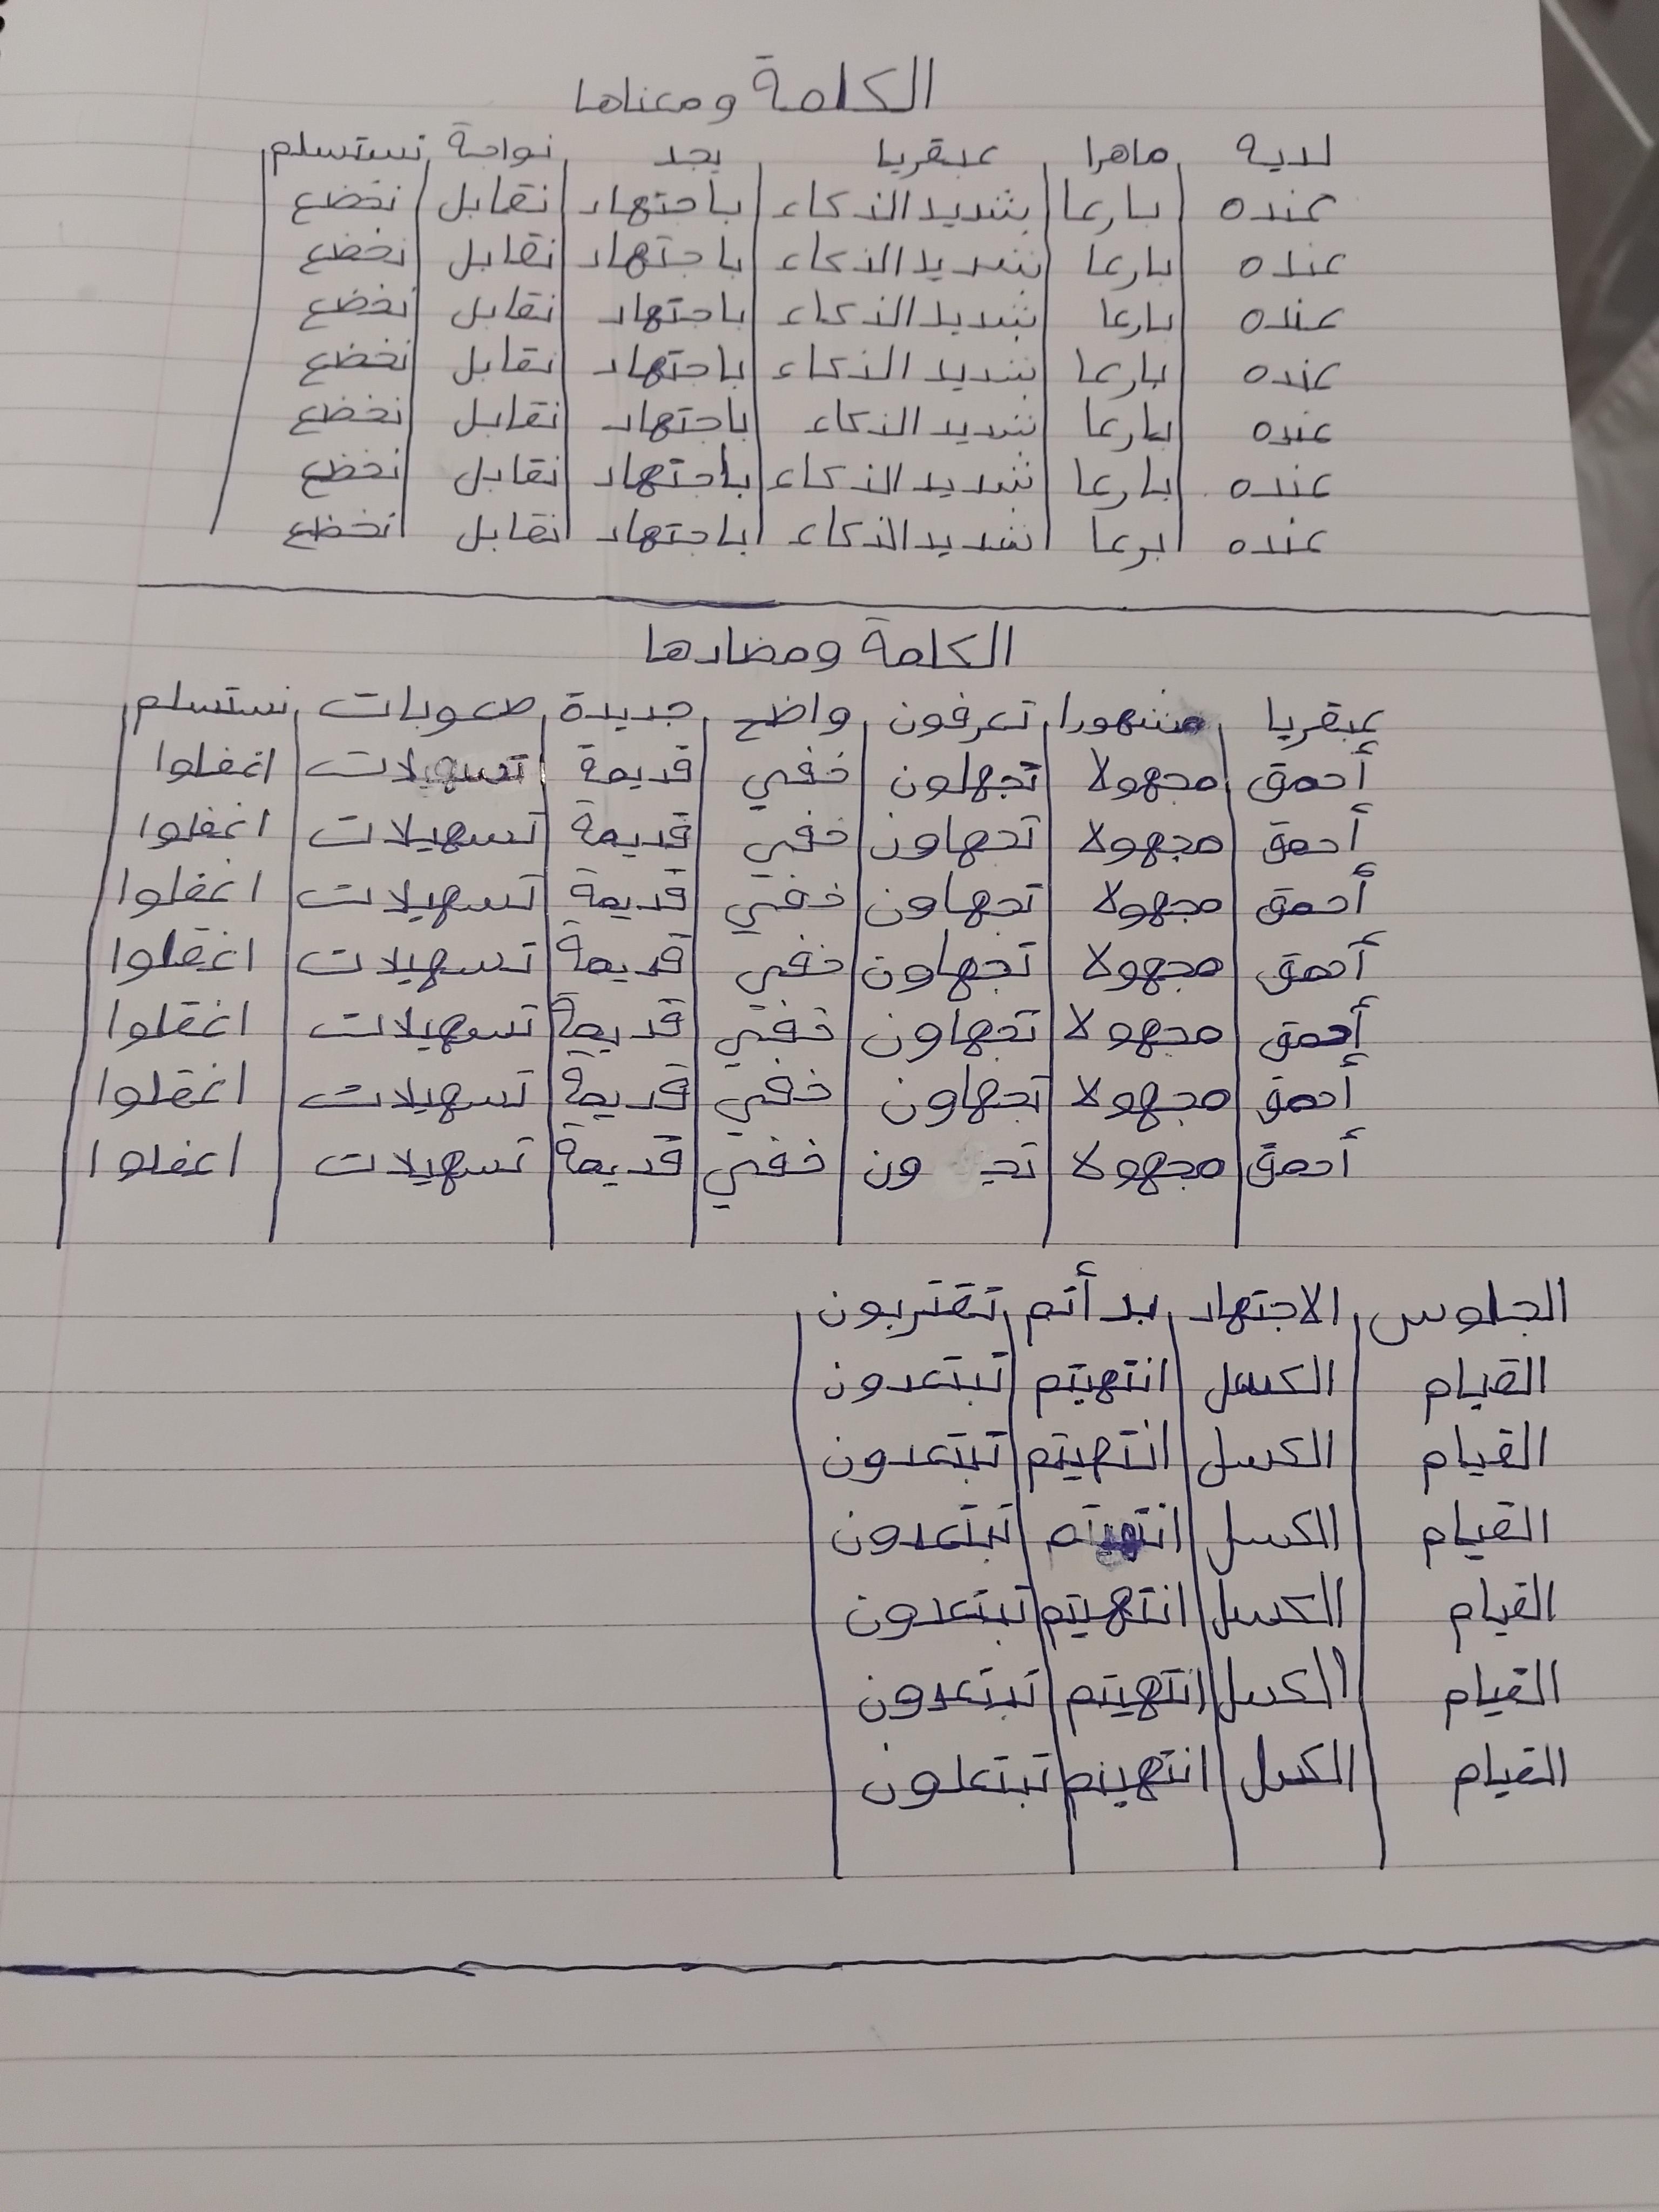 الكلمة ومعناها
لدية ماهرا عبقريا بجد نواجة نستسلم
عنده بارعا شديد الذكاء باجتهاد نقابل نخضع
عنده بارعا شديد الذكاء باجتهاد نقابل نخضع
عنده بارعا شديد الذكاء باجتهاد نقابل نخضع
عنده بارعا شديد الذكاء باجتهاد نقابل نخضع
عنده بارعا شديد الذكاء باجتهاد نقابل نخضع
عنده بارعا شديد الذكاء باجتهاد نقابل نخضع
عنده برعا شديد الذكاء باجتهاد نقابل نخضع
الكلمة ومضادها
عبقريا مشهورا تعرفون واضح جديدة صعوبات نستسلم
أحمق مجهولا تجهلون خفي قديمة تسهيلات اغفلوا
أحمق مجهولا تجهاون خفي قديمة تسهيلات اغفلوا
أحمق مجهولا تجهاون خفي قديمة تسهيلات اغفلوا
أحمق مجهولا تجهاون خفي قديمة تسهيلات اغفلوا
أحمق مجهولا تجهاون خفي قديمة تسهيلات اغفلوا
أحمق مجهولا تجهاون خفي قديمة تسهيلات اغفلوا
أحمق مجهولا خفي قديمة تسهيلات اغفلوا
الجلوس الاجتهاد بدأتم تقتربون
القيام الكسل انتهيتم تبتعدون
القيام الكسل انتهيتم تبتعدون
القيام الكسل انتهيتم تبتعدون
القيام الكسل انتهيتم تبتعدون
القيام الكسل انتهيتم تبتعدون
القيام الكسل انتهيتم تبتعدون